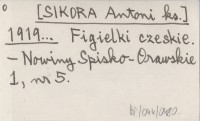 [SIKORA Antoni ks.]
1919... Figielki czeskie.
- Nowiny Spisko-Orawskie
1, nr 5.